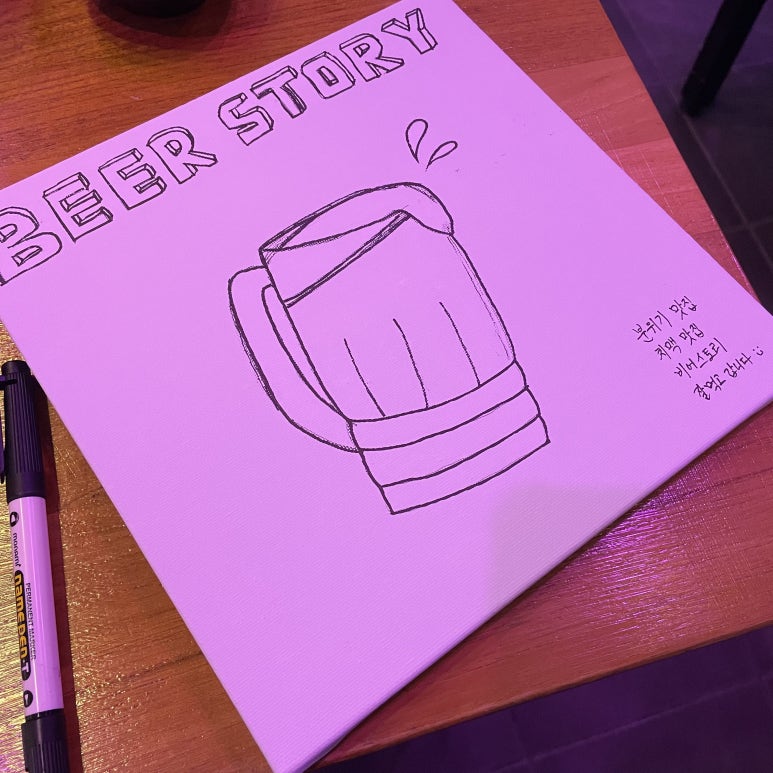 BEER STORY
분위기 맛집
치맥 맛집
비어스토리
잘먹고 갑니다 :)
monami
namepen T
PERMANENT MARKER